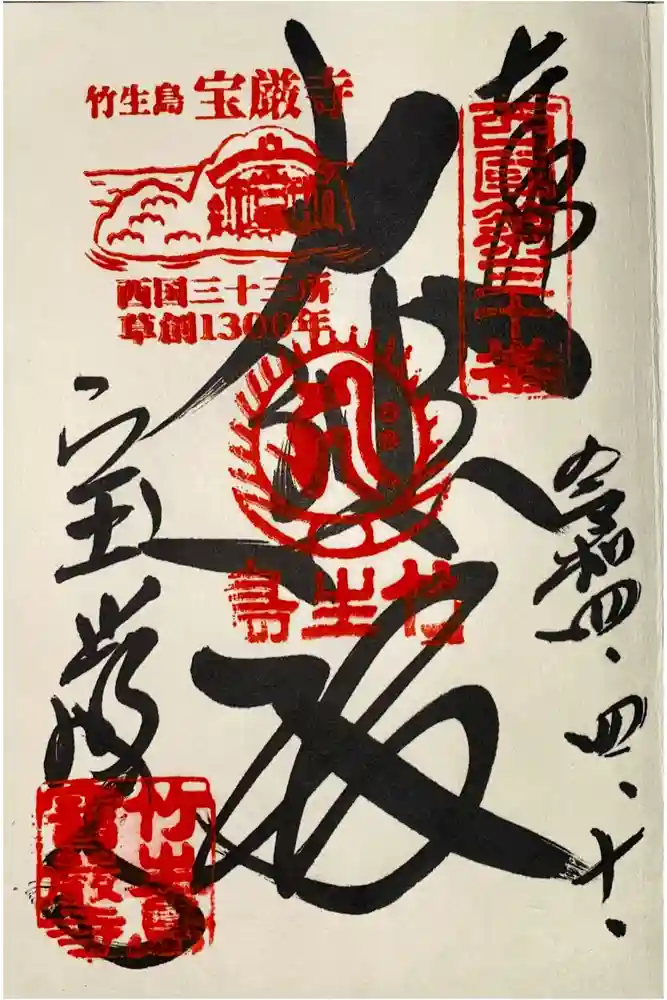 奉拝
西国第三十番
令和四、四、十、
大悲殿
竹生島 宝厳寺
西国三十三所
草創1300年
竹生島
宝厳寺
竹生島
寳嚴寺